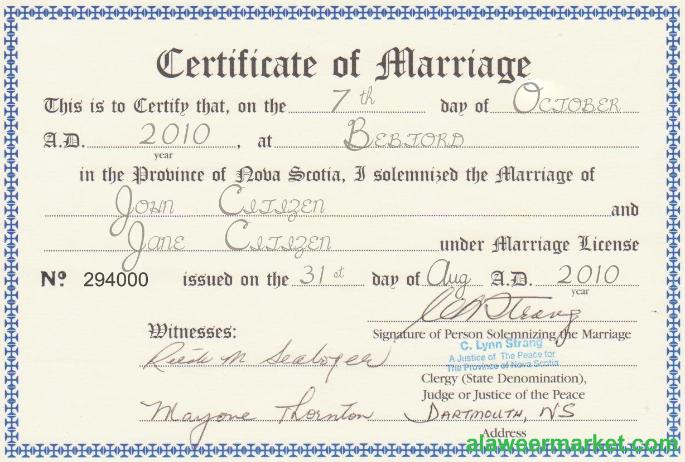 Certificate of Marriage
This is to Certify that, on the 7 th day of October
A.D. 2010, at Bebford
year
in the Province of Nova Scotia, I solemnized the Marriage of
John Citizen and
Jane Citizen under Marriage License
No. 294000 issued on the 31 st day of Aug A.D. 2010
year
Witnesses:
Signature of Person Solemnizing the Marriage
C. Lynn Strang
A Justice of The Peace for
The Province of Nova Scotia
Clergy (State Denomination),
Judge or Justice of the Peace
Thornton Dartmouth, NS
Address
alaweermarket.com